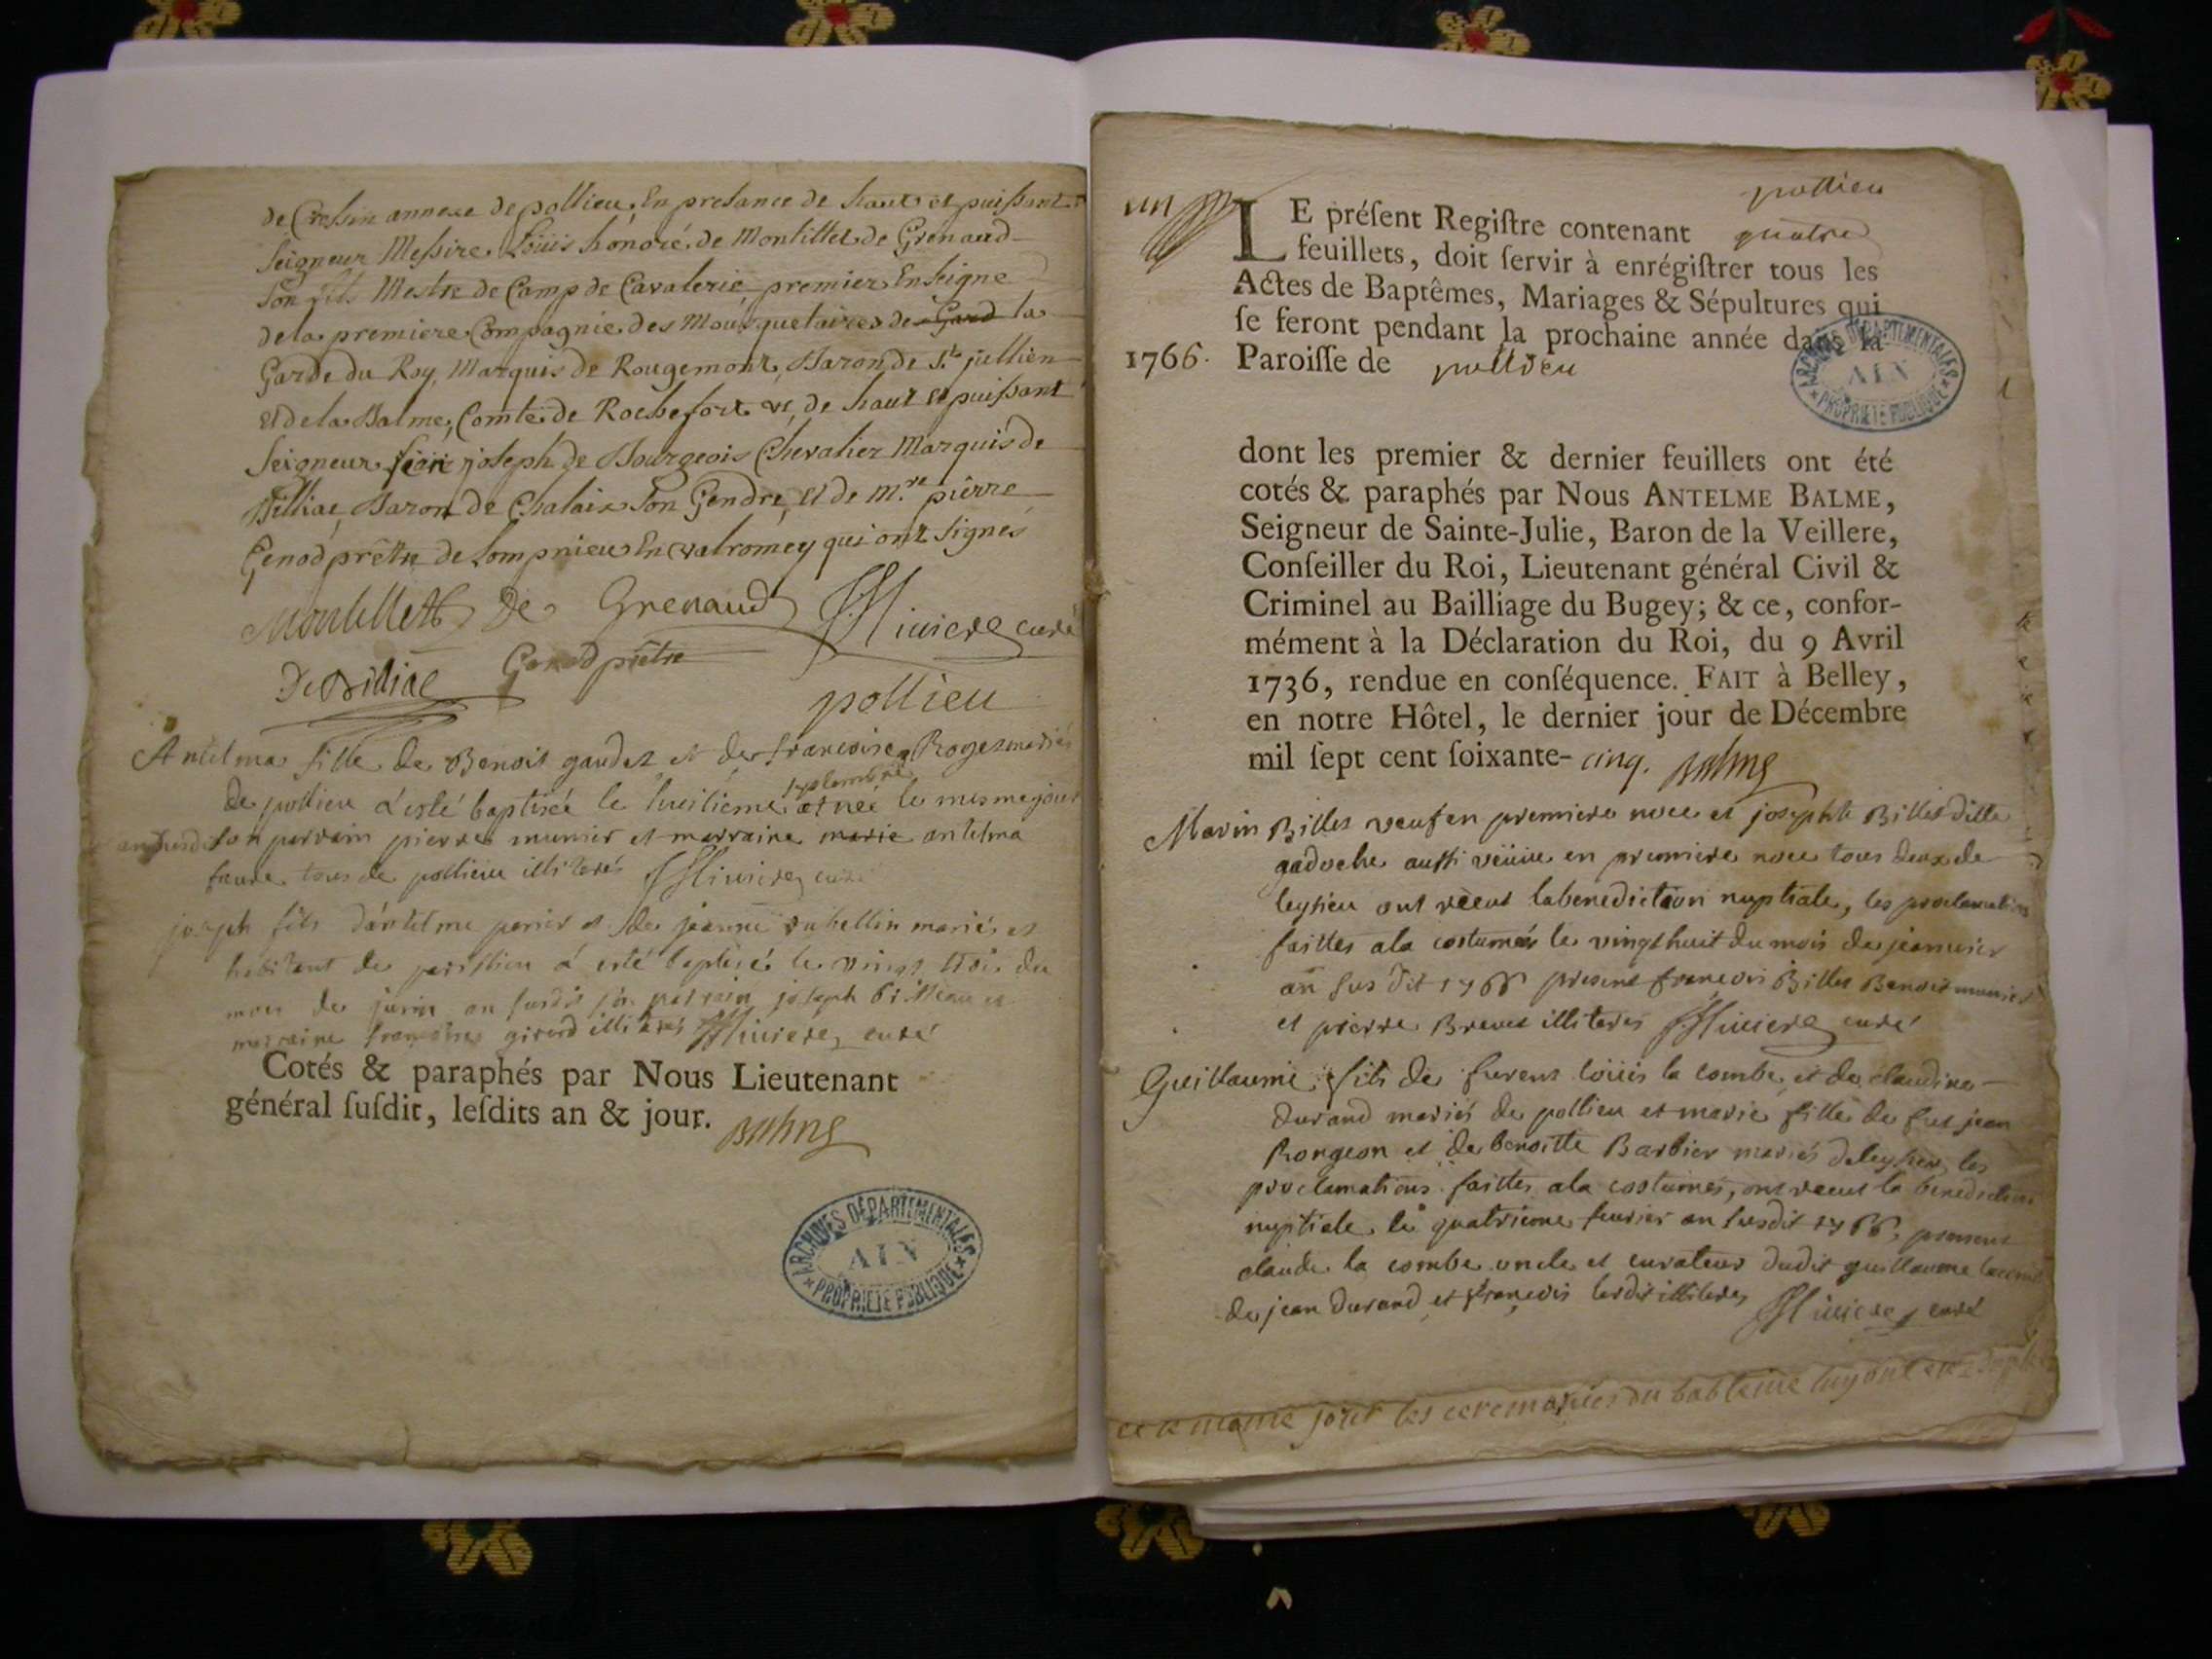 de Cressin annexe de pollieu, En presance de haut et puissant
Seigneur Messire Loüis honoré de Montillet de Grenaud
Son fils Mestre de Camp de Cavalerie, premier Enseigne
de la premiere Compagnie des Mousquetaires de Gard la
Garde du Roy, Marquis de Rougemont, Baron de St jullien
et de la Balme, Comte de Rochefort &c, de haut et puissant
Seigneur joseph de Bourgeois Chevalier Marquis de
Billiac, Baron de Chalais son Gendre, et de m.re pierre
Genod prêtre de Lompnieu En valromey qui ont signés
Montillet De Grenaud Riviere curé
De Billiac Genod prêtre
pollieu
Antelma fille de Benoit gaudet et de francoise Roger mariés
de pollieu a esté baptisée le huitieme septembre et née le mesme jour
an susdit son parrain pierre munier et marraine marie antelma
faure tous de pollieu illiterés Riviere curé
joseph fils d'antelme perier et de jeanne rubellin mariés et
habitant de parissieu a esté baptisé le vingt trois du
mois de juin an susdit son parrain joseph et
marraine francoise girerd illiterés Riviere curé
Cotés & paraphés par Nous Lieutenant
général ſuſdit, leſdits an & jour. Balme
ARCHIVES DÉPARTEMENTALES
AIN
* PROPRIETE PUBLIQUE *
pollieu
un
LE préſent Regiſtre contenant quatre
feuillets, doit ſervir à enrégiſtrer tous les
Actes de Baptêmes, Mariages & Sépultures qui
ſe feront pendant la prochaine année dans la
1766. Paroiſſe de pollieu
ARCHIVES DÉPARTEMENTALES
AIN
* PROPRIETE PUBLIQUE *
dont les premier & dernier feuillets ont été
cotés & paraphés par Nous ANTELME BALME,
Seigneur de Sainte-Julie, Baron de la Veillere,
Conſeiller du Roi, Lieutenant général Civil &
Criminel au Bailliage du Bugey; & ce, confor-
mément à la Déclaration du Roi, du 9 Avril
1736, rendue en conſéquence. FAIT à Belley,
en notre Hôtel, le dernier jour de Décembre
mil ſept cent ſoixante- cinq. Balme
Marin Billet veuf en premiere noce et josephte Billet ditte
gadoche aussi veüve en premiere noce tous deux de
leysieu ont réeeut la benediction nuptiale, les proclamations
faittes a la costumée le vingt huit du mois de jeanvier
an sus dit 1766 present francois Billet Benoit munier
et pierre Brevet illiterés Riviere curé
Guillaume fils de furent loüis la combe et de claudine
durand mariés de pollieu et marie fille de fut jean
Rongeon et de benoitte Barbier mariés de leysieu, les
proclamations faittes a la costumée, ont receut la benediction
nuptiale le quatrieme fevrier an susdit 1766, presens
claude la combe oncle et curateur dudit guillaume lacombe
de jean durand et francois illiterés Riviere curé
et le meme jour les ceremonies du babteme luy ont ete